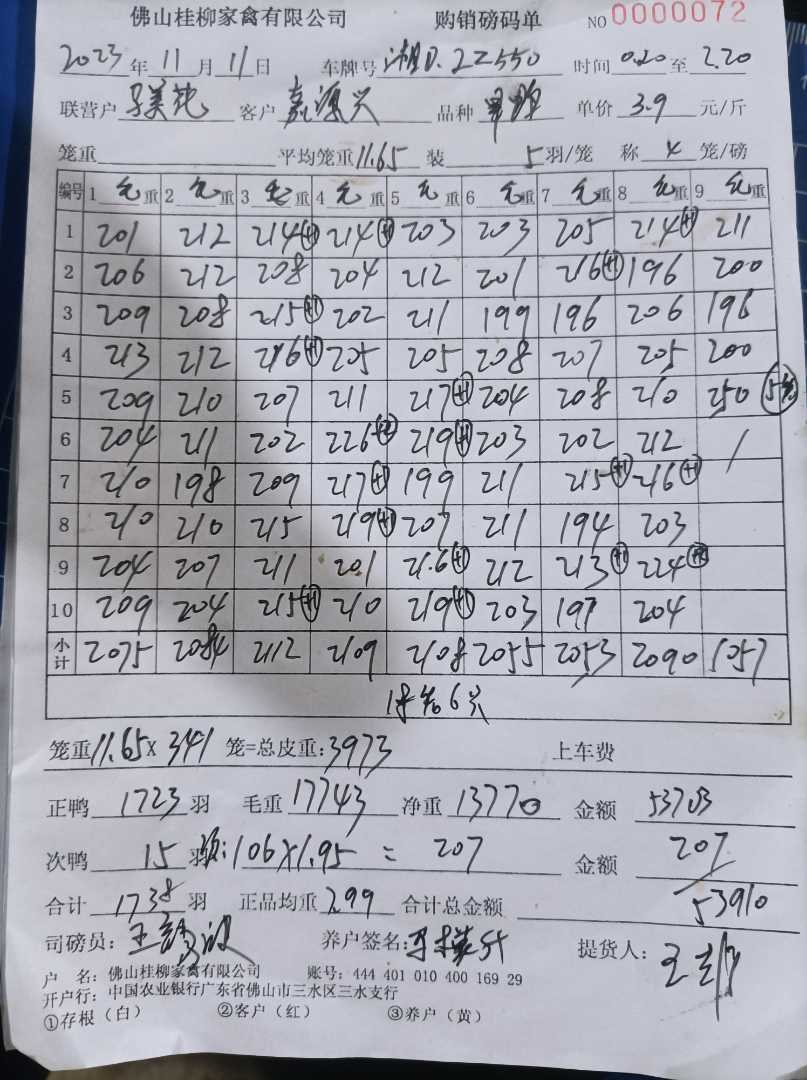 佛山桂柳家禽有限公司 购销磅码单 NO 0000072
2023年11月11日 车牌号 湘D.2Z550 时间0.20至2.20
联营户 客户 嘉源兴 品种 单价3.9元/斤
笼重 平均笼重11.65 装5羽/笼 称4笼/磅
编号 1毛重 2毛重 3毛重 4毛重 5毛重 6毛重 7毛重 8毛重 9毛重
1 201 212 214(+1) 214(+1) 203 203 205 214(+1) 211
2 206 212 208 204 212 201 216(+1) 196 200
3 209 208 215(+1) 202 211 199 196 206 196
4 213 212 216(+1) 205 205 208 207 205 200
5 209 210 207 211 217(+1) 204 208 210 250 (5笼)
6 204 211 202 226(+2) 219(+1) 203 202 212 /
7 210 198 209 217(+1) 199 211 215(+1) 216(+1)
8 210 210 215 219(+1) 207 211 194 203
9 204 207 211 201 216(+1) 212 213(+1) 224(+2)
10 209 204 215(+1) 210 219(+1) 203 197 204
小计 2075 2084 2112 2109 2108 2055 2053 2090 1057
6只
笼重11.65X341笼=总皮重:3973 上车费
正鸭1723羽 毛重17743 净重13770 金额53703
次鸭15羽 106X1.95=207 金额207
合计1738羽 正品均重3.99 合计总金额53910
司磅员: 养户签名: 提货人:
户 名:佛山桂柳家禽有限公司 账号:444 401 010 400 169 29
开户行:中国农业银行广东省佛山市三水区三水支行
①存根(白) ②客户(红) ③养户(黄)